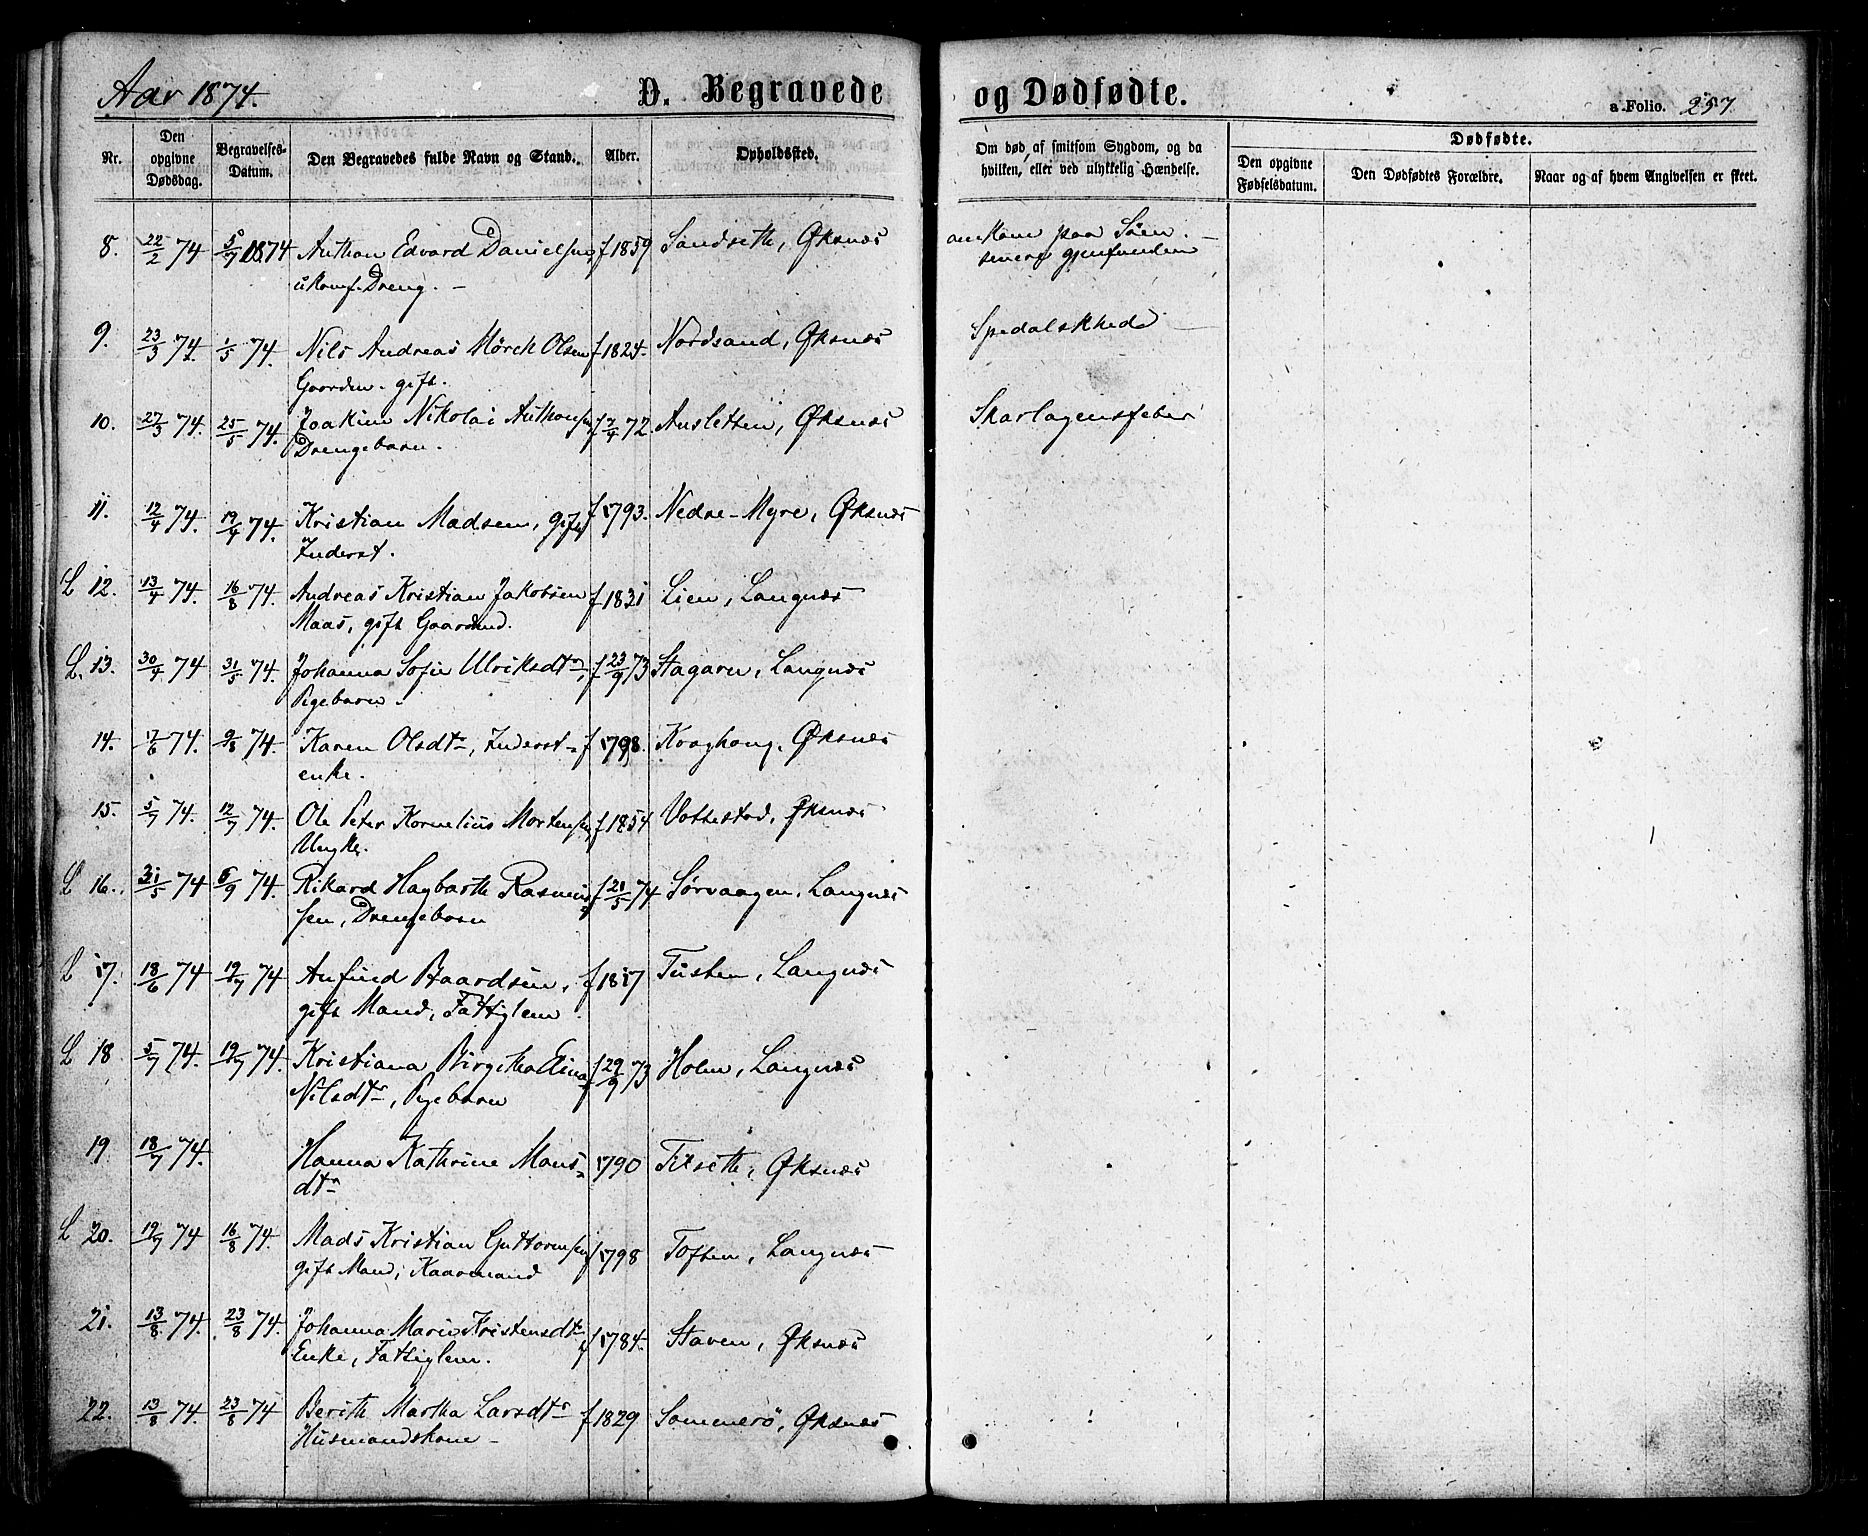 Aar 1874.
D. Begravede og Dødfødte.
a. Folio. 257.
Nr. Den opgivne Dødsdag. Begravelses-Datum. Den Begravedes fulde Navn og Stand. Alder. Opholdssted. Om død af smitsom Sygdom, og da hvilken, eller ved ulykkelig Hændelse. Dødfødte. Den opgivne Fødselsdatum. Den Dødfødtes Forældre. Naar og af hvem Angivelsen er skeet.
8. 22/2 74 5/7 1874 Anthon Edvard Danielsen, f 1859 Sandseth, Øksnæs omkom paa Søen.
ukonf. Dreng. senere gjenfunden
9. 23/3 74. 1/5 74. Nils Andreas Mørch Olsen f 1824. Nordsand, Øksnæs Spedalskhed
Gaardm. gift.
10. 27/3 74. 25/5 74. Joakim Nikolai Anthonsen f 7/4 72. Ansletten, Øksnæs Skarlagensfeber
Drengebarn.
11. 12/4 74 19/4 74. Kristian Madsen, gift f 1793. Nedre-Myre, Øksnæs
Inderst.
L 12. 13/4 74. 16/8 74. Andreas Kristian Jakobsen f 1831 Lien, Langnæs
Maas, gift Gaardmd.
L. 13. 30/4 74 31/5 74. Johanna Sofie Ulriksdtr, f 23/9 73 Stagaren, Langnæs
Pigebarn.
14. 17/6 74. 9/8 74. Karen Olsdtr, Inderst- f 1798. Øksnæs
enke.
15. 5/7 74. 12/7 74. Ole Peter Kornelius Mortensen, f 1854 Vottestad, Øksnæs
Ungk.
L 16. 31/5 74 6/9 74. Rikard Hagbarth Rasmus- f 21/5 74 Sørvaagen, Langnæs
sen, Drengebarn
L 17. 18/6 74 19/7 74 Anfind Baardsen, f 1817 Tusten, Langnæs
gift Mand, Fattiglem
L 18 5/7 74. 19/7 74. Kristiana Birgitha Elina f 29/9 73 Holm, Langnæs
Nilsdtr, Pigebarn
19. 18/7 74. Hanna Kathrine Mons- 1790 Tixseth, Øksnæs
dtr
L 20. 19/7 74 16/8 74. Mads Kristian Guttormsen f 1798 Toften, Langnæs
gift Mand, Kaarmand
21. 13/8 74. 23/8 74. Johanna Marie Kristensdtr f 1784. Staven, Øksnæs
Enke, Fattiglem.
22. 13/8 74 23/8 74 Berith Martha Larsdtr f 1829 Sommerø, Øksnæs
Husmandskone